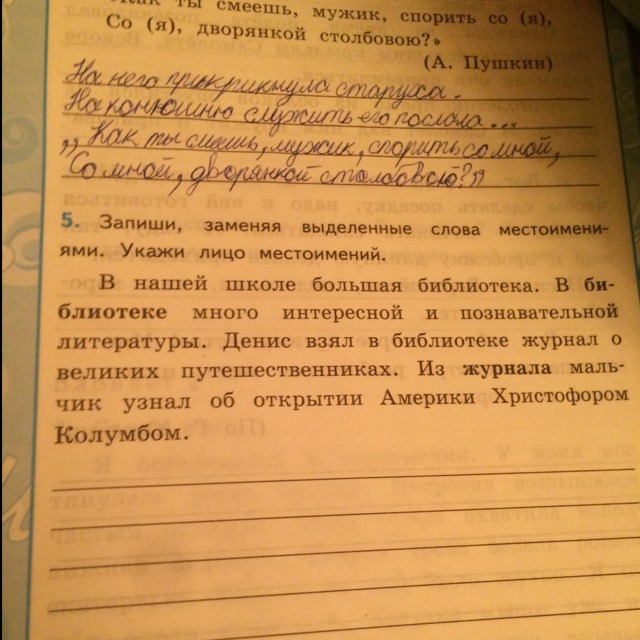 Как ты смеешь, мужик, спорить со (я),
Со (я), дворянкой столбовою?»
(А. Пушкин)
На него прикрикнула старуха.
На конюшню служить его послала...
„Как ты смеешь, мужик, спорить со мной,
Со мной, дворянкой столбовою?"
5. Запиши, заменяя выделенные слова местоимени-
ями. Укажи лицо местоимений.
В нашей школе большая библиотека. В би-
блиотеке много интересной и познавательной
литературы. Денис взял в библиотеке журнал о
великих путешественниках. Из журнала маль-
чик узнал об открытии Америки Христофором
Колумбом.